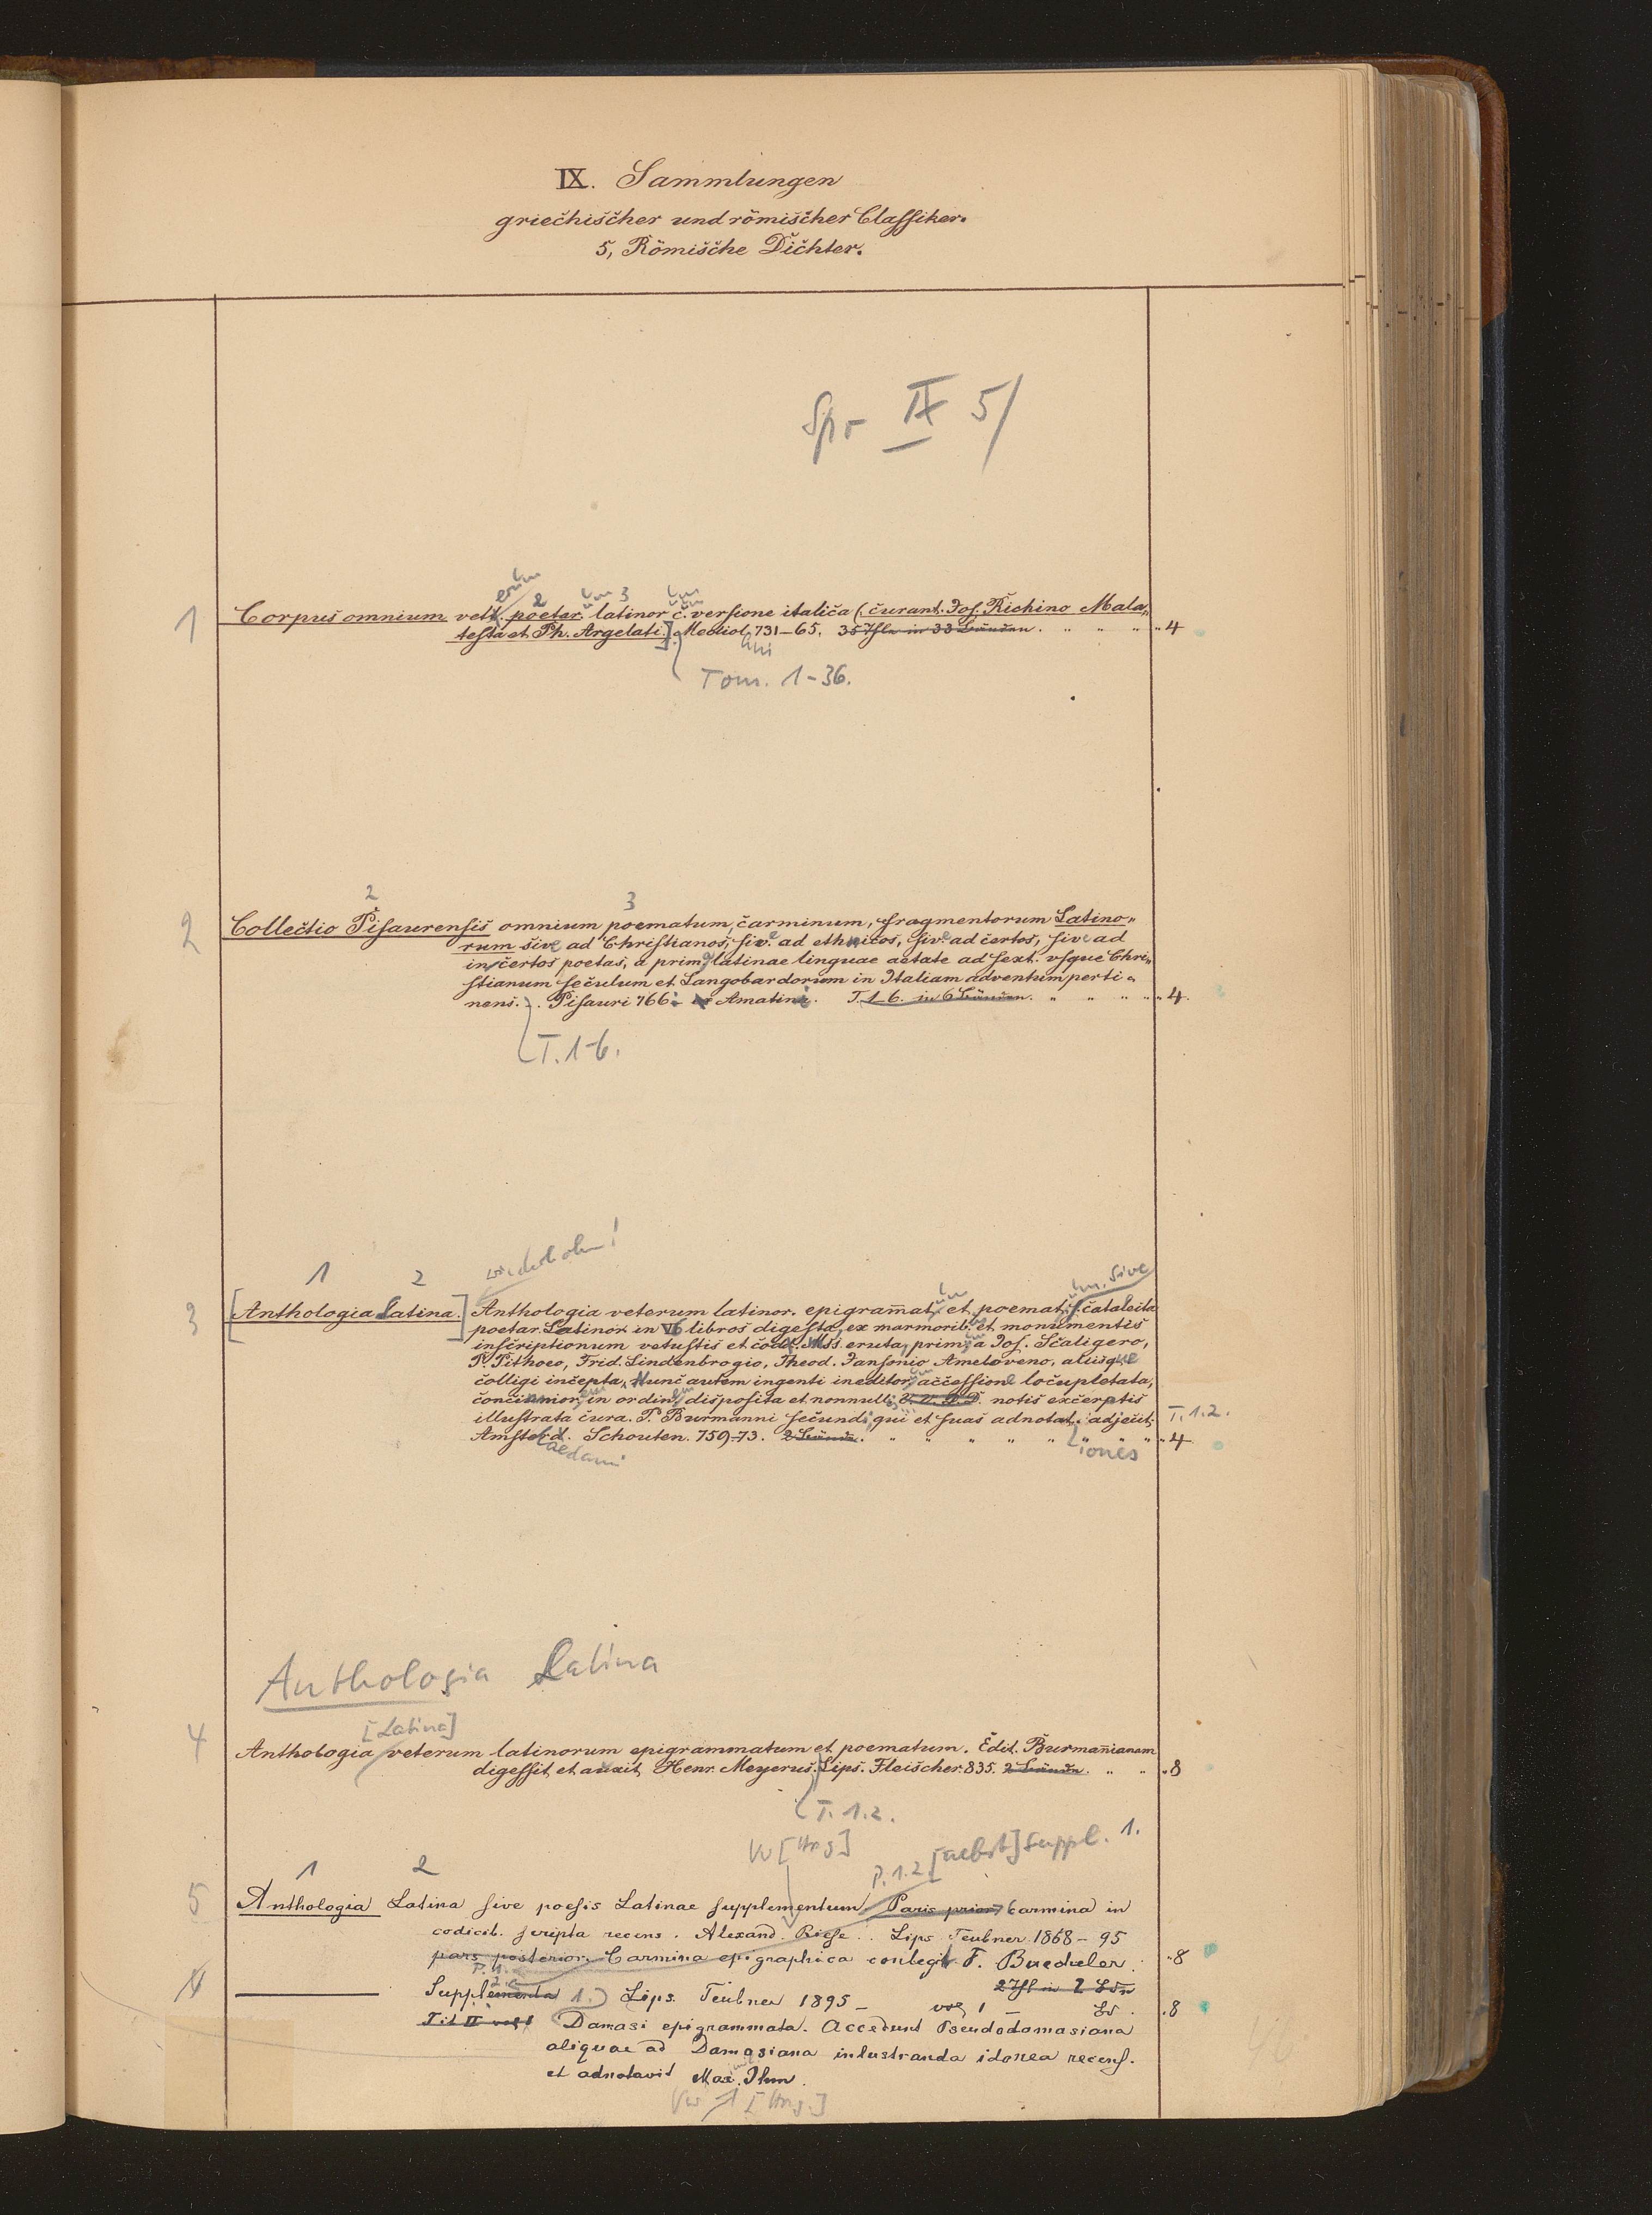 IX. Sammlungen
griechischer und römischer Classiker.
5, Römische Dichter.
Spr IX 5/
um
erum 2 um 3 um
1 Corpus omnium vett. poetar. latinor c. versione italica (curant. Jos. Richino Mala„
testa et Ph. Argelati.] Mediol. 731–65. 35 Thle in 33 Bänden. „ „ „ „ 4
Tom. 1–36.
2 3
2 Collectio Pisaurensis omnium poematum, carminum, fragmentorum Latino„
rum sive ad Christianos, sive ad ethnicos, sive ad certos, sive ad
incertos poetas, a prima latinae linguae aetate ad sext. usque Chri„
stianum seculum et Langobardorum in Italiam adventum perti„
nens. Pisauri 766. Amatina. T. 1–6. in 6 Bänden. „ „ „ „ 4.
T. 1–6.
wiederholen!
1 2 um. sive
3 [Anthologia Latina.] Anthologia veterum latinor. epigramat. et poemat. s. catalecta
poetar. Latinor. in VI libros digesta, ex marmorib. et monumentis
inscriptionum vetustis et codd. Mss. eruta, primum a Jos. Scaligero,
P. Pithoeo, Frid. Lindenbrogio, Theod. Jansonio Ameloveno, aliisque
colligi incepta, Nunc autem ingenti ineditor. accessione locupletata,
concinniorem in ordinem disposita et nonnullis V. V. D. D. notis excerptis
illustrata cura. P. Burmanni secundi, qui et suas adnotat. adjecit. T. 1. 2.
Amsterd. Schouten. 759–73. 2 Bände. „ „ „ „ „ „ „ „ 4
aedami iones
Anthologia Latina
[Latina]
4 Anthologia veterum latinorum epigrammatum et poematum. Edit. Burmanianam
digessit et auxit Henr. Meyerus. Lips. Fleischer. 835. 2 Bände. „ „ „ 8
T. 1. 2.
Vw [Hrsg] P. 1. 2 [nebst] Suppl. 1.
1 2
5 Anthologia Latina sive poesis Latinae supplementum Pars prior, Carmina in
codicib. scripta recens. Alexand. Riese.. Lips Teubner 1868–95
pars posterior. Carmina epigraphica conlegit F. Buecheler. „ 8
2 Thl in 2 Bdn
Supplementa 1.) Lips. Teubner 1895 – vol 1 – Bd. . 8
Damasi epigrammata. Accedunt Pseudodamasiana
aliquae ad Damasiana inlustranda idonea recens.
et adnotavit Max. Ihm.
[Hrsg.]